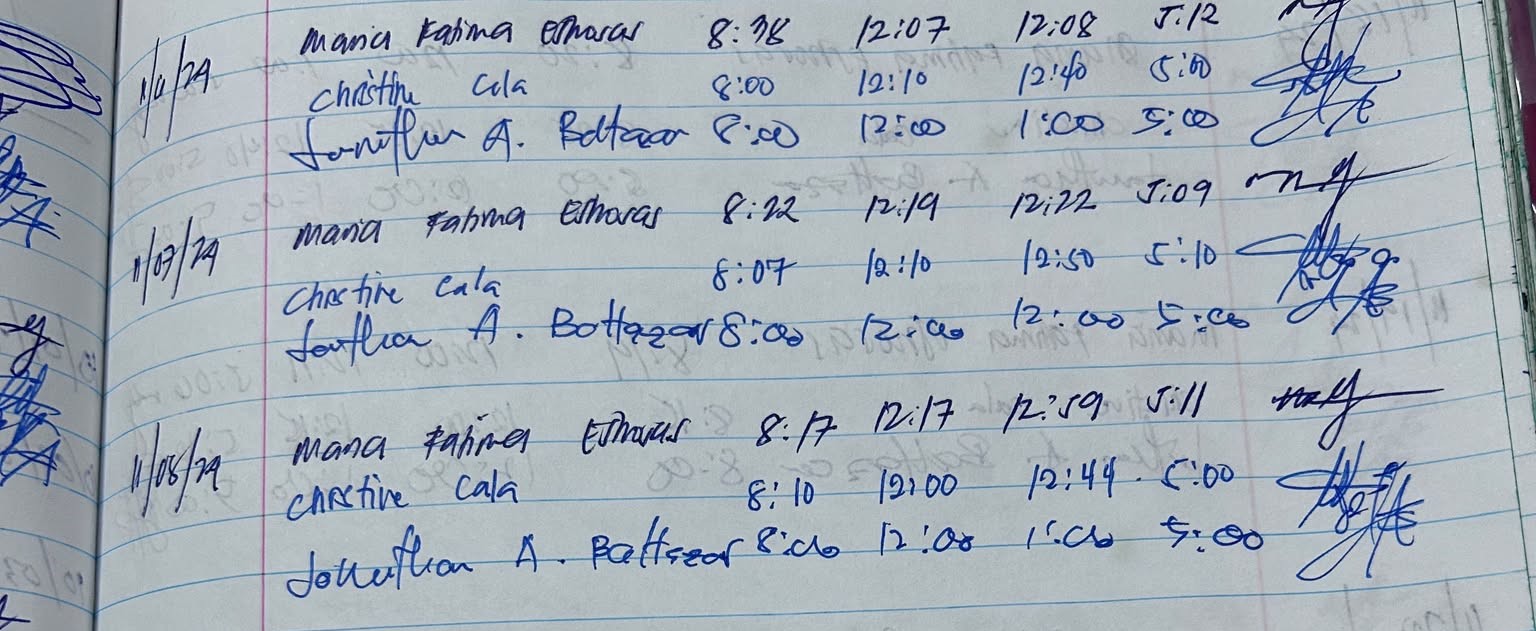 Maria Fatima Esmoras 8:38 12:07 12:08 5:12
11/6/24
Christine Cala 8:00 12:10 12:40 5:00
Jonathan A. Baltazar 8:00 12:00 1:00 5:00
Maria Fatima Esmoras 8:22 12:19 12:22 5:09
11/07/24
Christine Cala 8:07 12:10 12:50 5:10
Jonathan A. Baltazar 8:00 12:00 12:00 5:00
Maria Fatima Esmoras 8:17 12:17 12:59 5:11
11/08/24
Christine Cala 8:10 12:00 12:44 5:00
Jonathan A. Baltazar 8:00 12:00 1:00 5:00